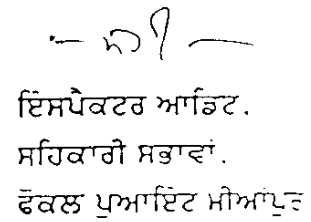 ਇੰਸਪੈਕਟਰ ਆਡਿਟ.
ਸਹਿਕਾਰੀ ਸਭਾਵਾਂ.
ਫੋਕਲ ਪੁਆਇੰਟ ਮੀਆਂਪੁਰ